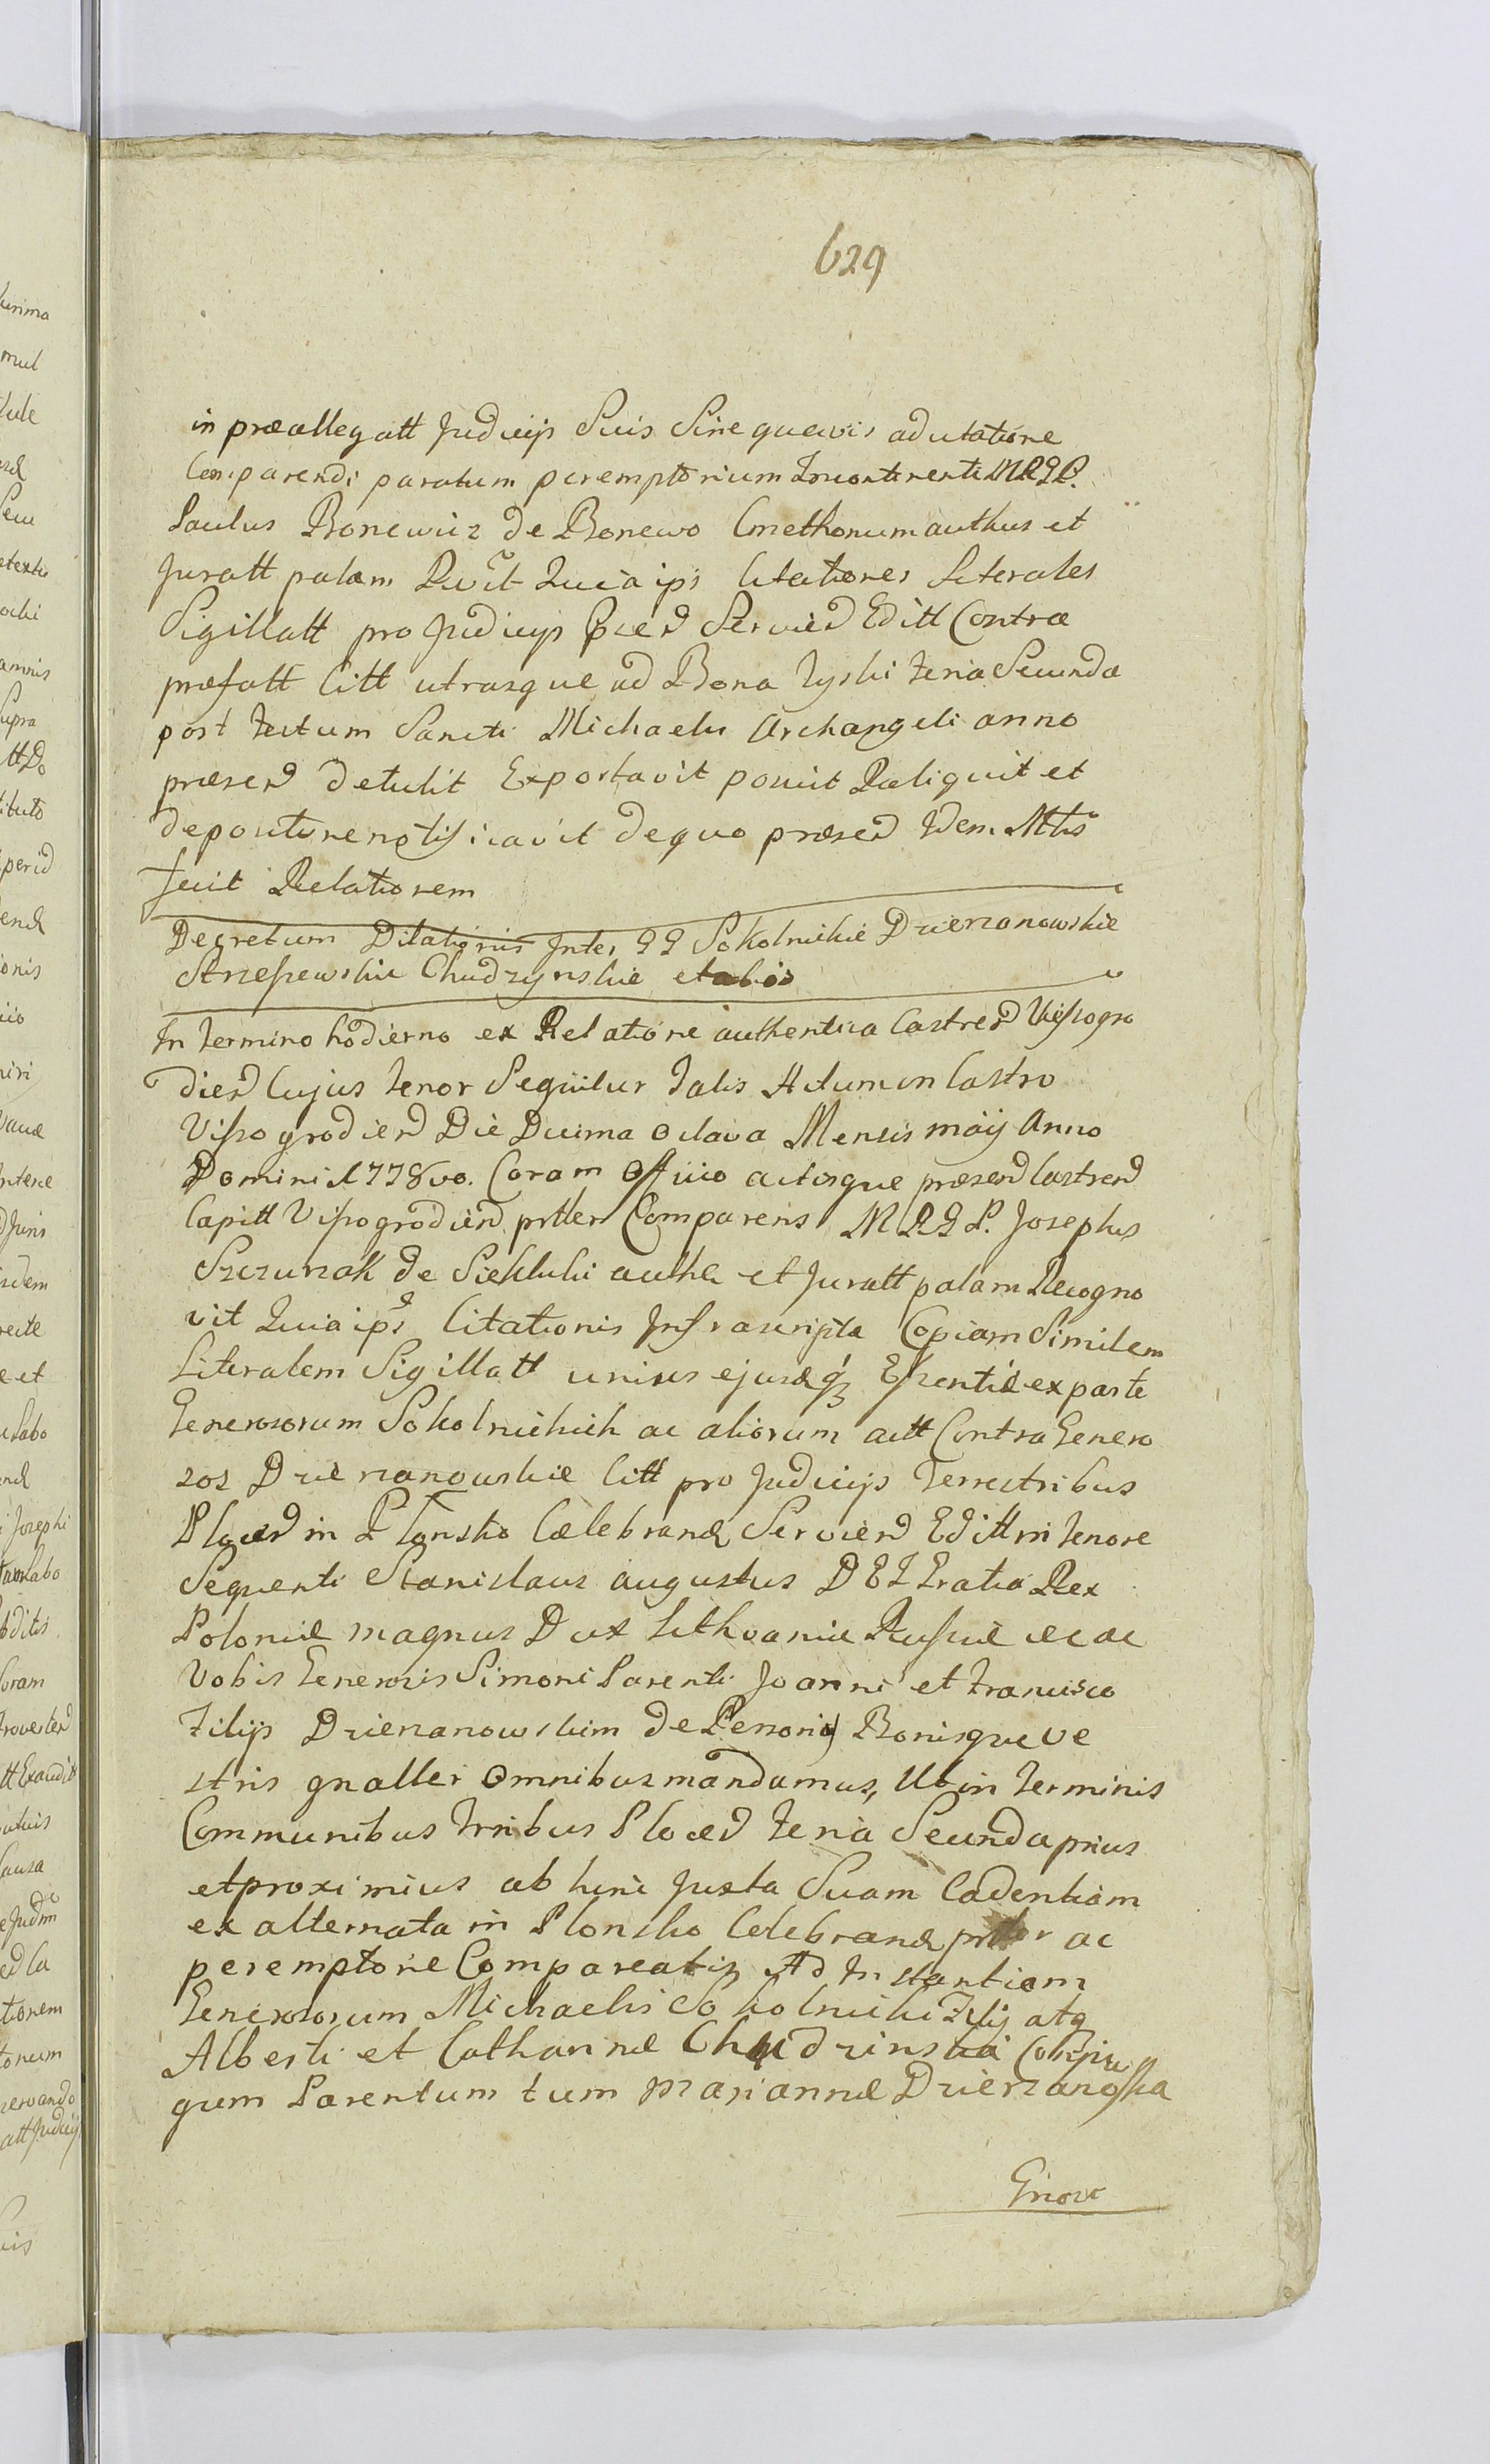 629
in præallegatt Judicijs Suis Sine quavis ad utatione
Comparendi paratum peremptorium Incontinenti MRGP.
Paulus Bonewicz de Bonewo Cmethonum authus et
Juratt palam Rvit Quia ips Citationes Literales
Sigillatt pro Judicijs Serviend Editt Contra
præfatt Citt utrasque ad Bona Zyski Feria Secunda
post Festum Sancti Michaelis Archangeli anno
præsen detulit Exportavit posuit Reliquit et
depositione notificavit de quo præsen Idem Mtis
fecit Relationem
Decretum Dilationis Inter GG Sokolnickie Dzierzanowskie
Strzeszewskie Chudzynskie et alios
In Termino hodierno ex Relatione authentica Castren Wyszogro
dien Cujus tenor Sequitur talis Actum in Castro
Viszogrodien Die Decima Octava Mensis maij Anno
Domini 1778vo. Coram Officio actisque præsen Castren
Capitt Viszogrodien prtter Comparens MRGP. Josephus
Szczurzak de Siekluki auth et Juratt palam Recogno
vit Quia ips Citationis Infrascripta Copiam Similem
Literalem Sigillatt unius ejusdq Essentiæ ex parte
Generosorum Sokolnickich ac aliorum actt Contra Genero
sos Dzierzanowskie Citt pro Judicijs Terrestribus
Plocen in Plonsko Cælebrand Servien Editt in tenore
Sequenti Stanislaus augustus DEI Gratia Rex
Poloniæ magnus Dux Lithvaniæ Russiæ &c ac
Vobis Generosis Simoni Parenti Joanni et Francisco
Filijs Dzierzanowskim de Personis Bonisque ve
stris gnaller Omnibus mandamus, Ut in Terminis
Communibus tribus Plocen Feria Secunda prius
et proximius ab hinc Juxta Suam Cadentiam
ex alternata in Plonsko Celebrand prtter ac
peremptorie Compareatis Ad Instantiam
Generosorum Michaelis Sokolnicki Filij atq
Alberti et Catharinæ Chudzinska Conju
gum Parentum tum Mariannæ Dzierzanoska
Gnoræ